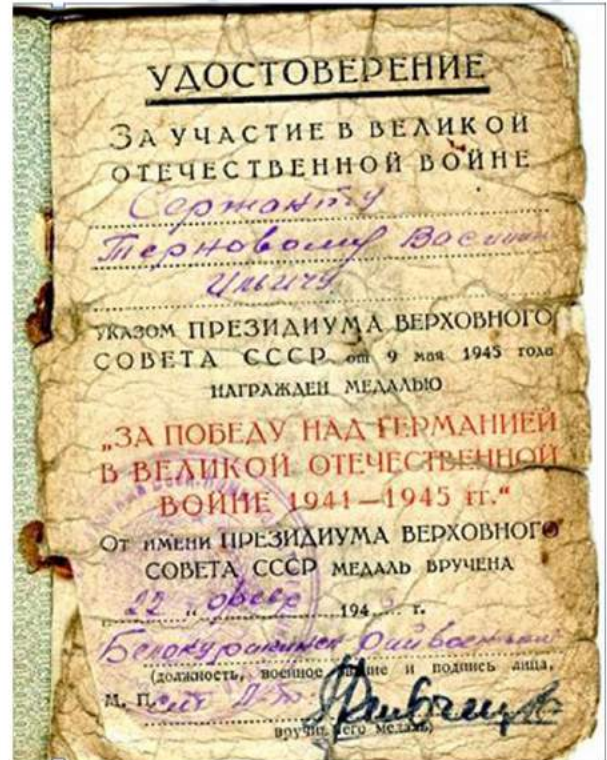 УДОСТОВЕРЕНИЕ
ЗА УЧАСТИЕ В ВЕЛИКОЙ
ОТЕЧЕСТВЕННОЙ ВОЙНЕ
Сержанту
Терновому Васили
Ильичу
УКАЗОМ ПРЕЗИДИУМА ВЕРХОВНОГО
СОВЕТА СССР от 9 мая 1945 года
НАГРАЖДЕН МЕДАЛЬЮ
„ЗА ПОБЕДУ НАД ГЕРМАНИЕЙ
В ВЕЛИКОЙ ОТЕЧЕСТВЕННОЙ
ВОЙНЕ 1941—1945 гг.“
ОТ ИМЕНИ ПРЕЗИДИУМА ВЕРХОВНОГО
СОВЕТА СССР МЕДАЛЬ ВРУЧЕНА
„22 „ февр 194 г.
Белокуракинск райвоенком
(должность, военное звание и подпись лица,
М. П.
вручившего медаль)